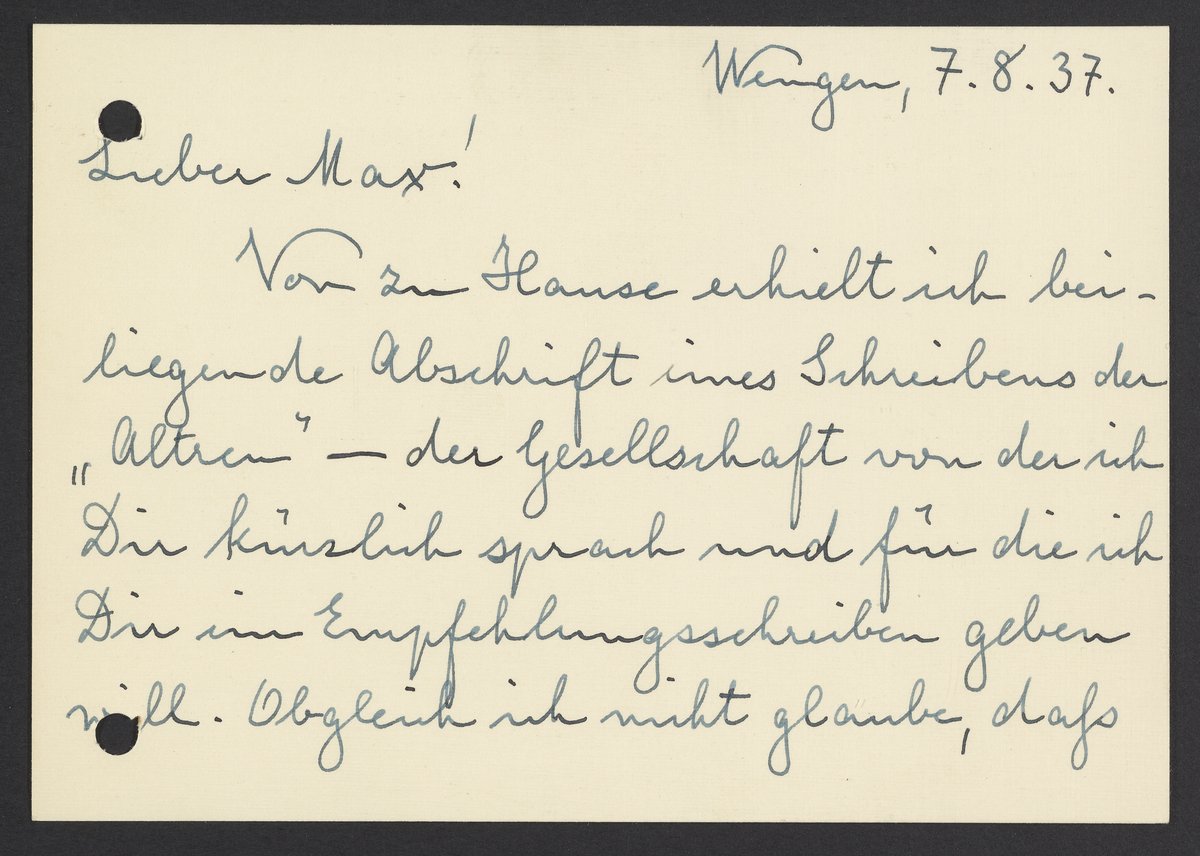 Wengen, 7. 8. 37.
Lieber Max!
Von zu Hause erhielt ich bei-
liegende Abschrift eines Schreibens der
„Altreu" — der Gesellschaft von der ich
Dir kürzlich sprach und für die ich
Dir ein Empfehlungsschreiben geben
will. Obgleich ich nicht glaube, dass